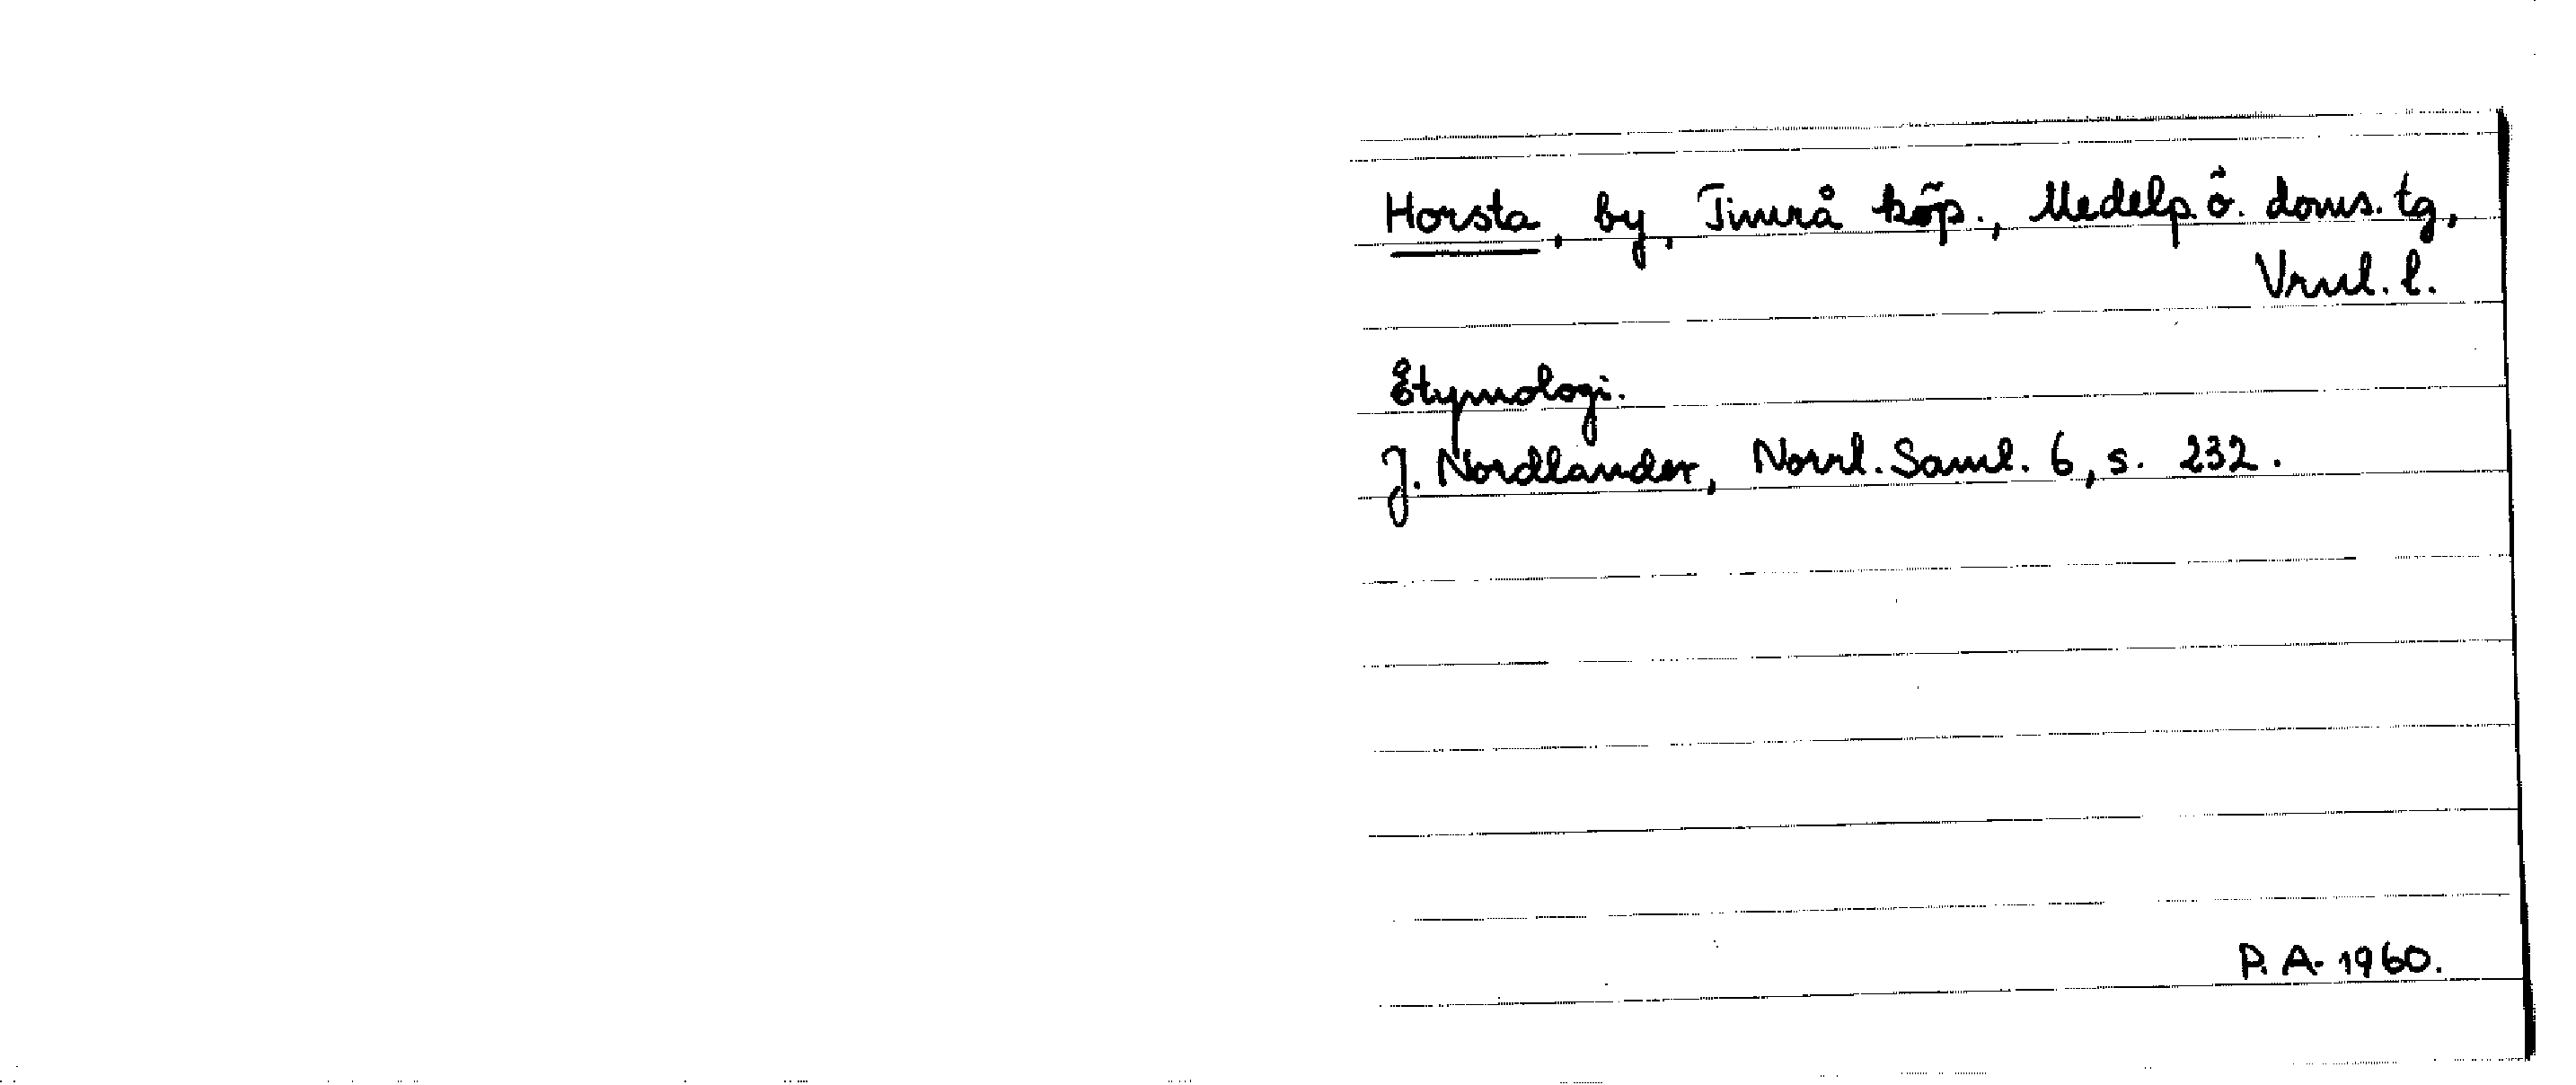 Horsta, by, Timrå köp., Medelp. ö. doms. tg,
Vrnl. l.
Etymologi.
J. Nordlander, Norrl. Saml. 6, s. 232.
P. A. 1960.